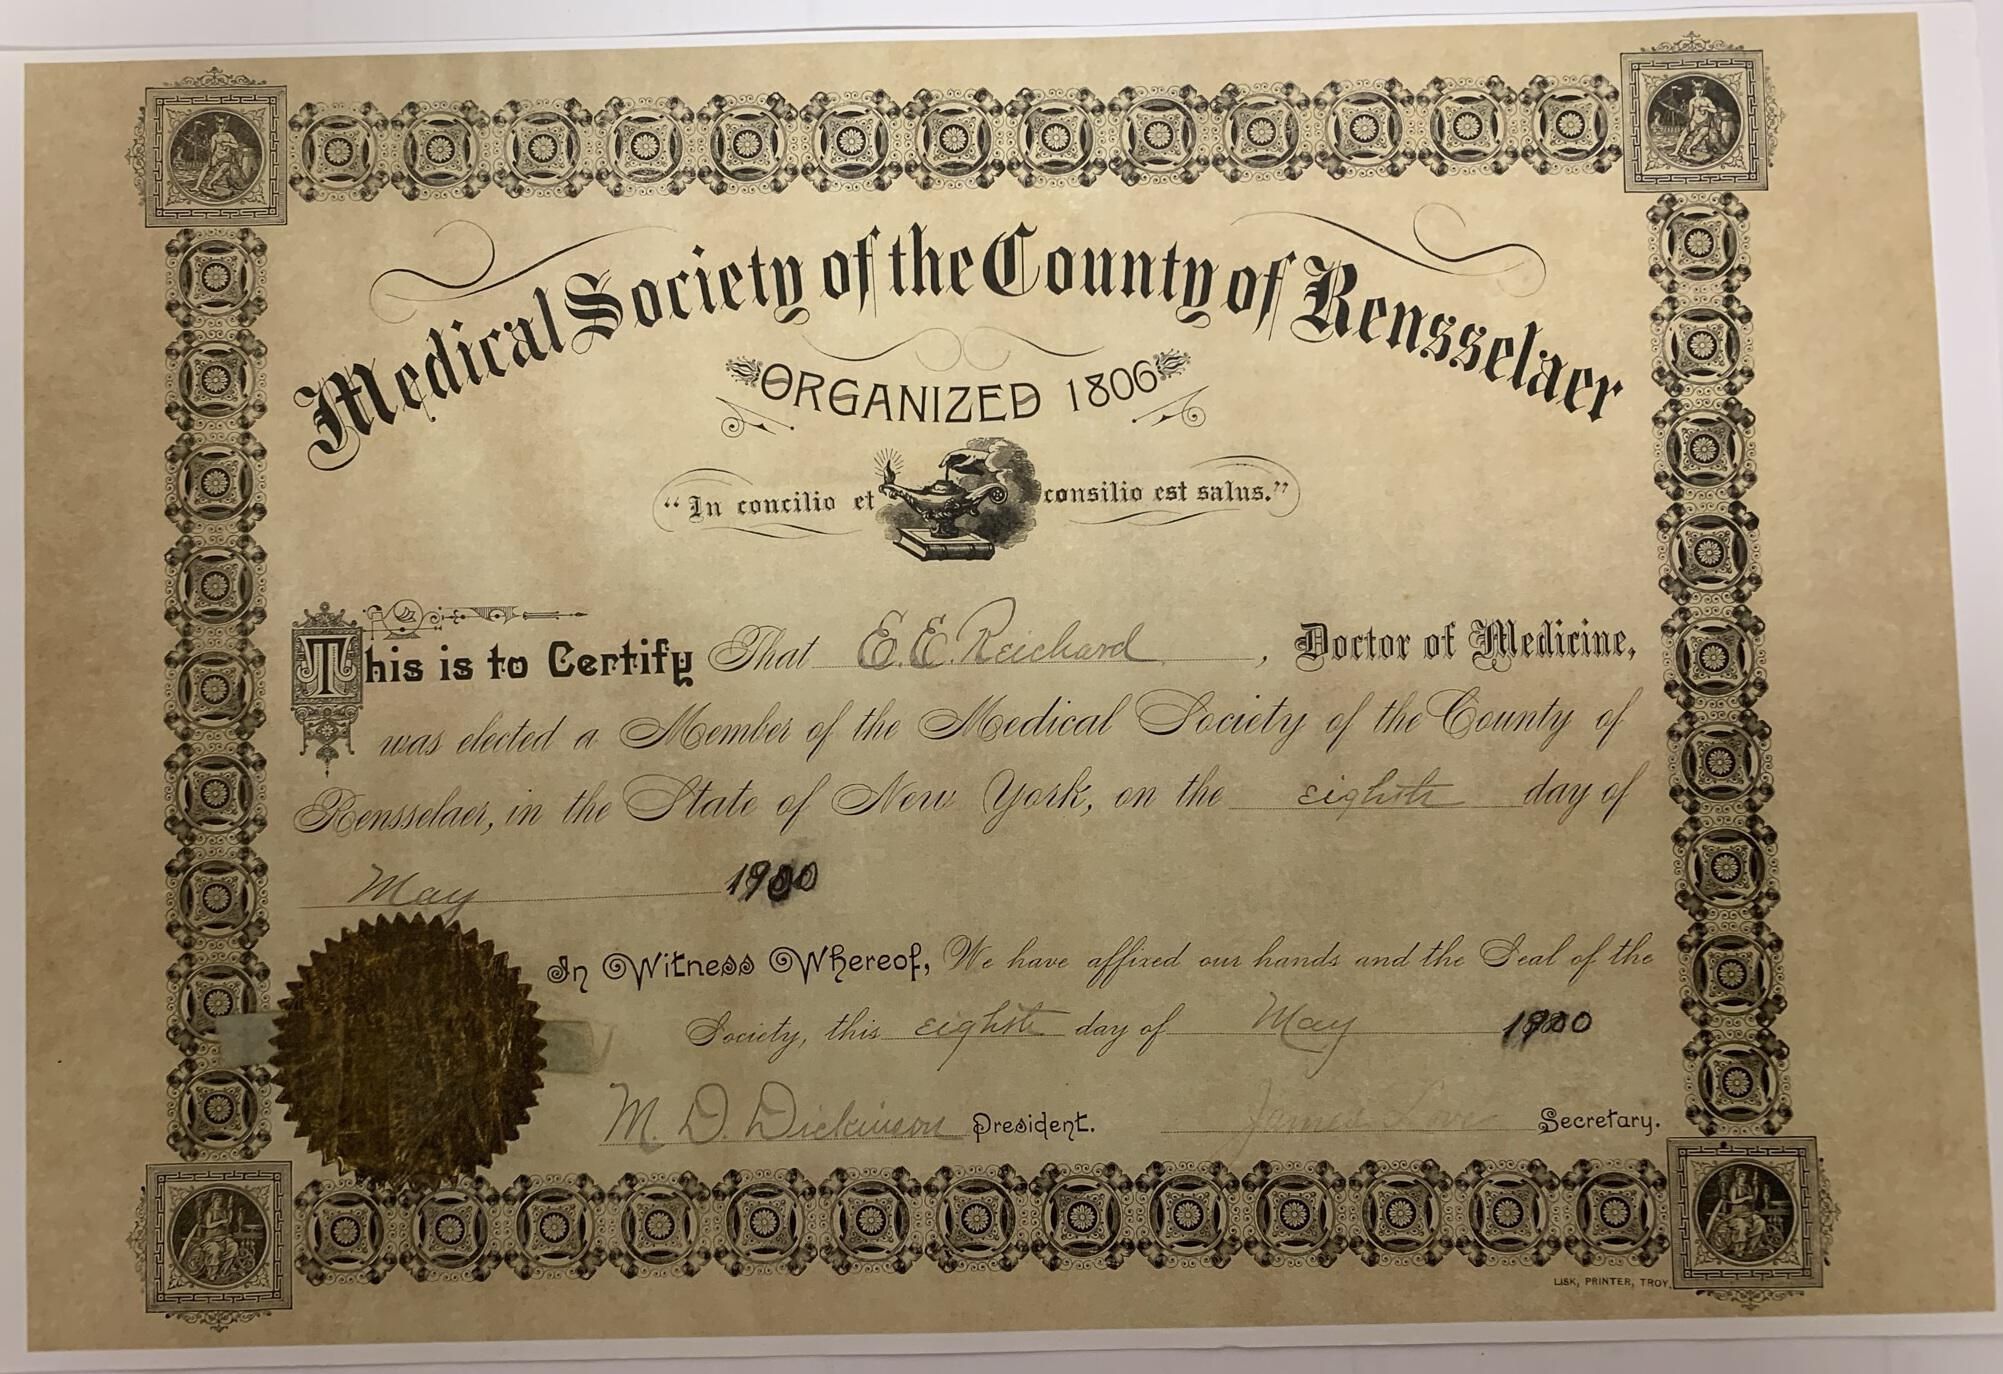 Medical Society of the County of Rensselaer
ORGANIZED 1806
"In concilio et consilio est salus."
This is to Certify That E. E. Reichard, Doctor of Medicine,
was elected a Member of the Medical Society of the County of
Rensselaer, in the State of New York, on the eighth day of
May 1900
In Witness Whereof, We have affixed our hands and the Seal of the
Society, this eighth day of May 1900
M. D. Dickinson President. James Secretary.
LISK, PRINTER, TROY.